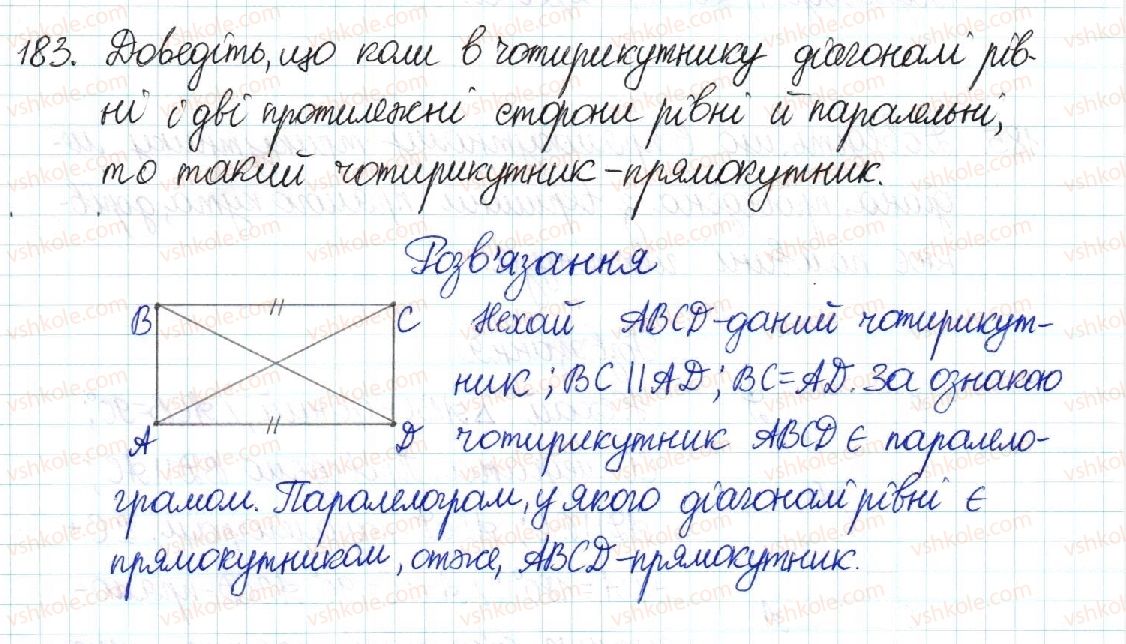 183. Доведіть, що коли в чотирикутнику діагоналі рів-
ні і дві протилежні сторони рівні й паралельні,
то такий чотирикутник – прямокутник.
Розв'язання
B C Нехай ABCD – даний чотирикут-
ник; BC || AD; BC = AD. За ознакою
A D чотирикутник ABCD є паралело-
грамом. Паралелограм, у якого діагоналі рівні є
прямокутником, отже, ABCD – прямокутник.